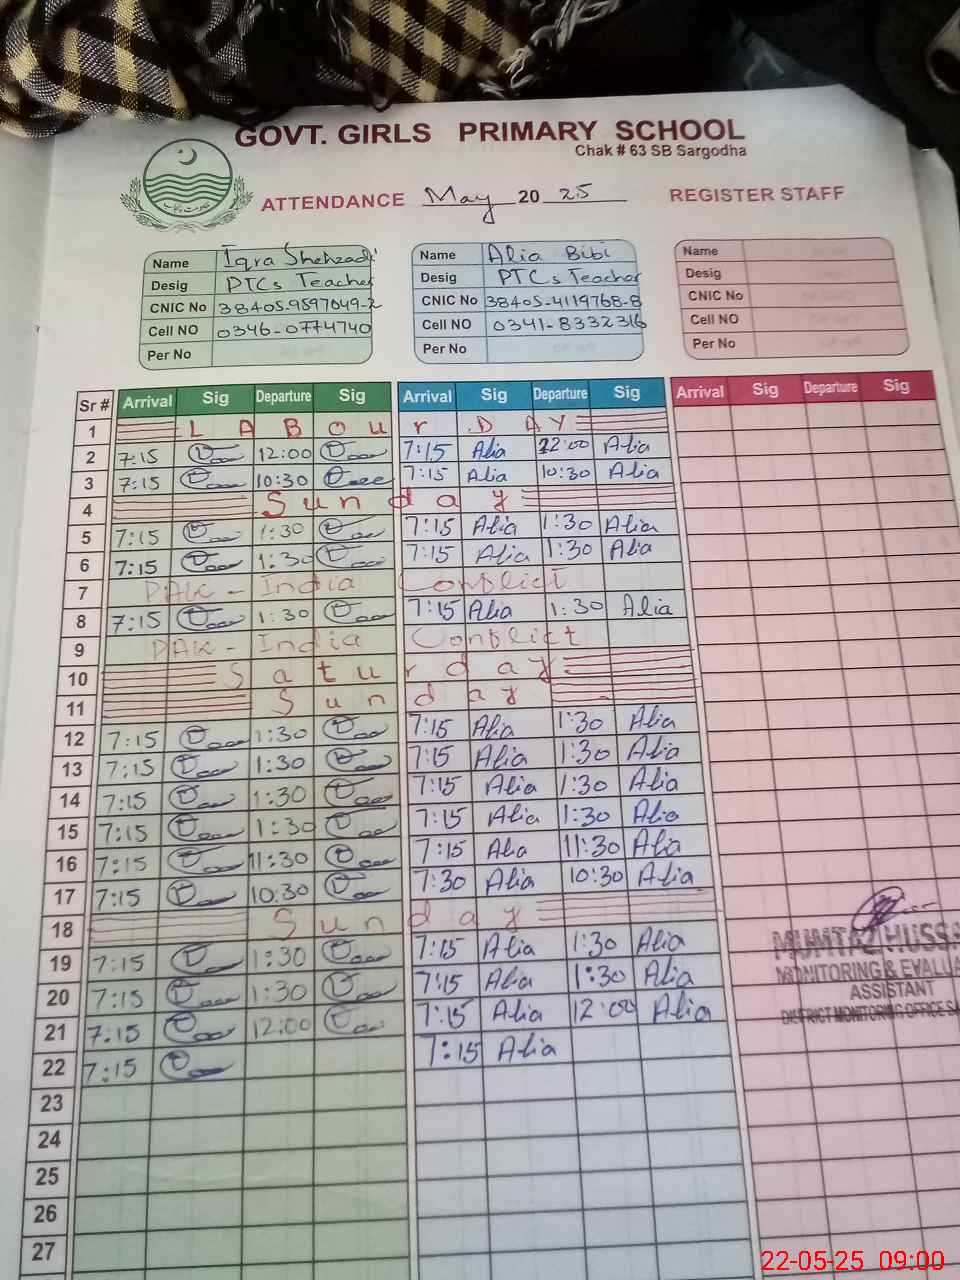 GOVT. GIRLS PRIMARY SCHOOL
Chak # 63 SB Sargodha
ATTENDANCE May 2025 REGISTER STAFF
Name Iqra Shehzadi Name Alia Bibi Name
Desig PTCs Teacher Desig PTCs Teacher Desig
CNIC No 38405-9897049-2 CNIC No 38405-4119768-8 CNIC No
Cell NO 0346-0774740 Cell NO 0341-8332316 Cell NO
Per No Per No Per No
Sr # Arrival Sig Departure Sig Arrival Sig Departure Sig Arrival Sig Departure Sig
1 LABOur DAY
2 7:15 12:00 7:15 Alia 12:00 Alia
3 7:15 10:30 7:15 Alia 10:30 Alia
4 Sunday
5 7:15 1:30 7:15 Alia 1:30 Alia
6 7:15 1:30 7:15 Alia 1:30 Alia
7 PAK - India Conflict
8 7:15 1:30 7:15 Alia 1:30 Alia
9 PAK - India Conflict
10 Saturday
11 Sunday
12 7:15 1:30 7:15 Alia 1:30 Alia
13 7:15 1:30 7:15 Alia 1:30 Alia
14 7:15 1:30 7:15 Alia 1:30 Alia
15 7:15 1:30 7:15 Alia 1:30 Alia
16 7:15 11:30 7:15 Alia 11:30 Alia
17 7:15 10:30 7:30 Alia 10:30 Alia
18 Sunday
19 7:15 1:30 7:15 Alia 1:30 Alia
20 7:15 1:30 7:15 Alia 1:30 Alia
21 7:15 12:00 7:15 Alia 12:00 Alia
22 7:15 7:15 Alia
23
24
25
26
27
MUMTAZ HUSSA
MONITORING & EVALUA
ASSISTANT
DISTRICT MONITORING OFFICE SA
22-05-25 09:00